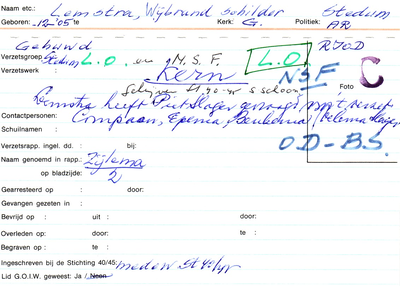 Naam etc.: Lemstra, Wijbrand Schilder Stedum
Geboren: -12-'05 te Kerk: G. Politiek: AR
Gehuwd RIOD
Verzetsgroep: Stedum L.O. en M.S.F. L.O.
Verzetswerk Kern NSF
Foto C
Lemstra heeft Piet Slager
Contactpersonen: Compaan, Epema, Beukema
Schuilnaam :
OD-BS.
Verzetsrapp. ingel. dd. : bij:
Naam genoemd in rapp.: Zijlema
op bladzijde: 2
Gearresteerd op : door:
Gevangen gezeten in :
Bevrijd op : uit : door:
Overleden op : te : door:
Begraven op : te :
Ingeschreven bij de Stichting 40/45: medew St 40/45
Lid G.O.I.W. geweest: Ja / Neen